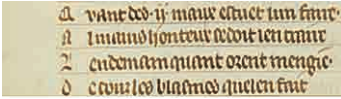 a vant des .ij. maux estuet lun faire.
a l mains honteux se doit len traire
L endemain quant orent mengie.
d e tour les blasmes quelen fait